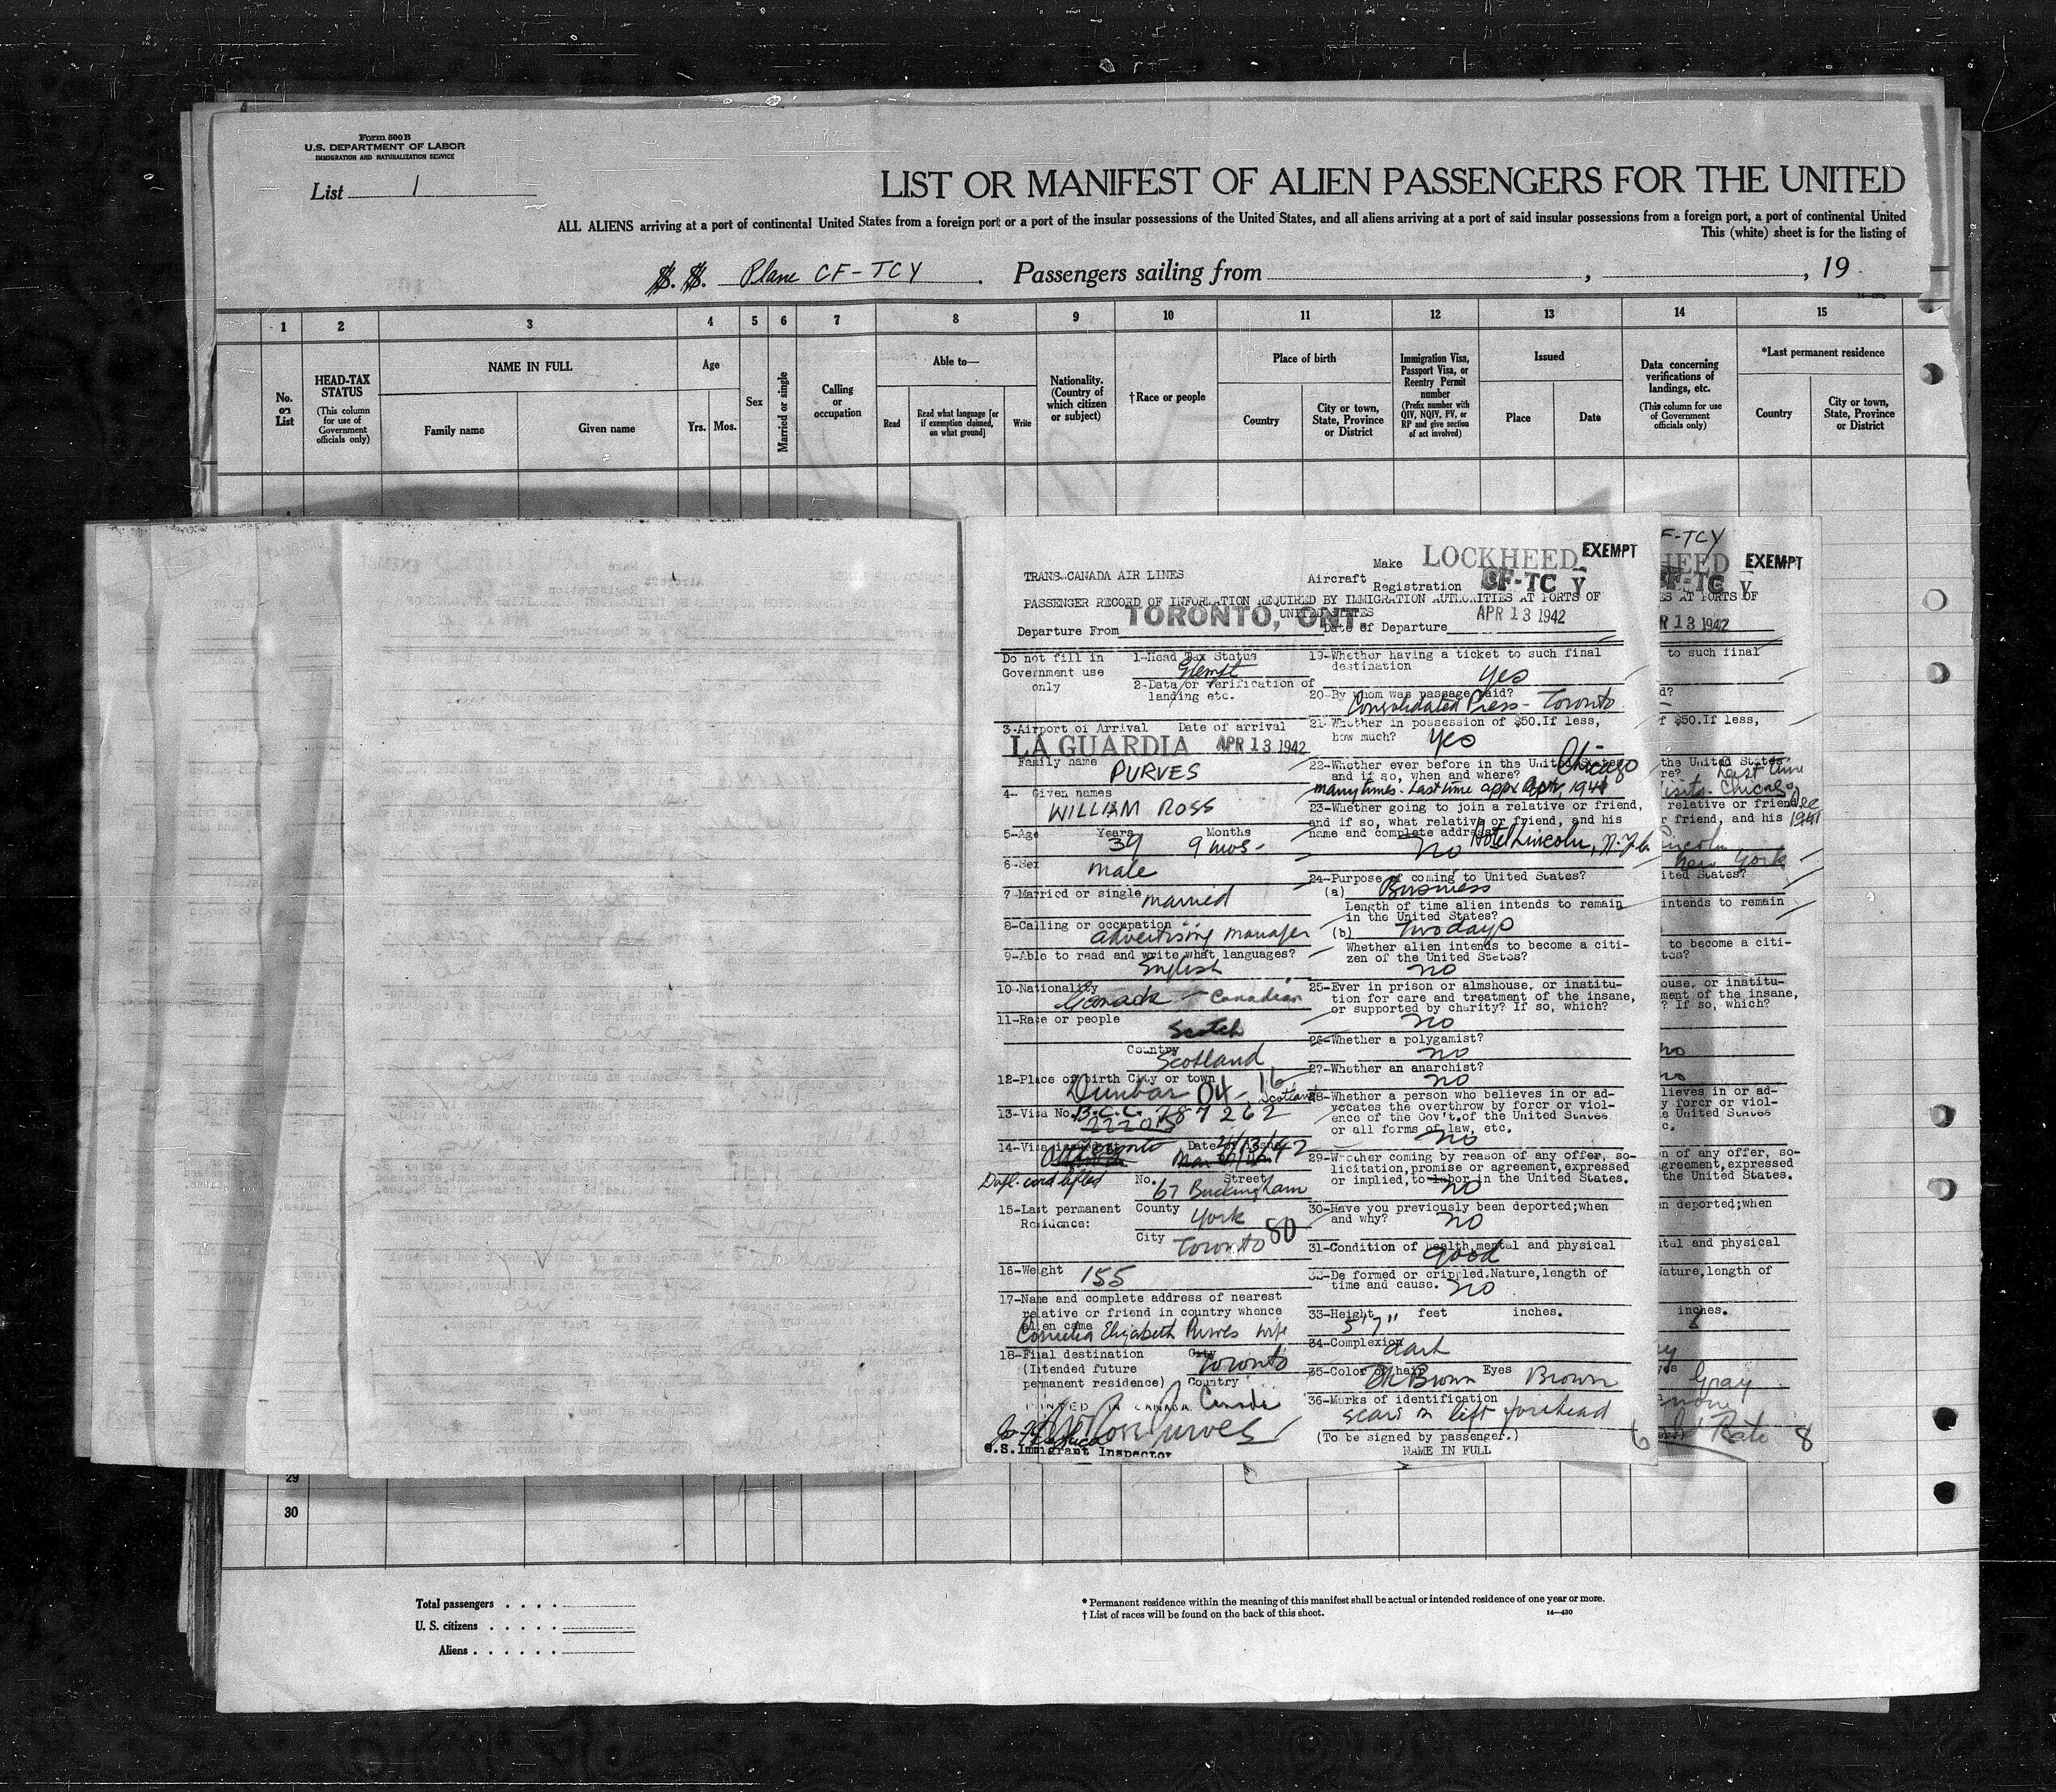 Form 500B
U.S. DEPARTMENT OF LABOR
IMMIGRATION AND NATURALIZATION SERVICE
List 1
LIST OR MANIFEST OF ALIEN PASSENGERS FOR THE UNITED
ALL ALIENS arriving at a port of continental United States from a foreign port or a port of the insular possessions of the United States, and all aliens arriving at a port of said insular possessions from a foreign port, a port of continental United
This (white) sheet is for the listing of
S. S. Plane CF-TCY. Passengers sailing from , , 19
1 2 3 4 5 6 7 8 9 10 11 12 13 14 15
No. on List
HEAD-TAX STATUS
(This column for use of Government officials only)
NAME IN FULL
Family name
Given name
Age
Yrs. Mos.
Sex
Married or single
Calling or occupation
Able to—
Read
Read what language [or if exemption claimed, on what ground]
Write
Nationality. (Country of which citizen or subject)
†Race or people
Place of birth
Country
City or town, State, Province or District
Immigration Visa, Passport Visa, or Reentry Permit number
(Prefix number with QIV, NQIV, PV, or RP and give section of act involved)
Issued
Place
Date
Data concerning verifications of landings, etc.
(This column for use of Government officials only)
*Last permanent residence
Country
City or town, State, Province or District
TRANS-CANADA AIR LINES
Aircraft
Make LOCKHEED EXEMPT
Registration CF-TC Y
PASSENGER RECORD OF INFORMATION REQUIRED BY IMMIGRATION AUTHORITIES AT PORTS OF
UNITED STATES
Departure From TORONTO, ONT.
Date of Departure APR 13 1942
Do not fill in
Government use
only
1-Head Tax Status
Exempt
2-Data or verification of
landing etc.
3-Airport of Arrival Date of arrival
LA GUARDIA APR 13 1942
Family name
PURVES
4- Given names
WILLIAM ROSS
5-Age Years Months
39 9 mos-
6-Sex
male
7-Married or single married
8-Calling or occupation
advertising manager
9-Able to read and write what languages?
English
10-Nationality
Canada - Canadian
11-Race or people
Scotch
Country
Scotland
12-Place of birth City or town
Dunbar 04-16 Scotland
13-Visa No. B.C.C. 787262
14-Visa issued at Toronto Date of Issue
Dupl. card lifted
No. Street
67 Buckingham
15-Last permanent
Residence:
County York
City Toronto 80
16-Weight 155
17-Name and complete address of nearest
relative or friend in country whence
alien came
Cornelia Elizabeth Purves wife
18-Final destination
(Intended future
permanent residence)
City
Toronto
Country
Canada
PRINTED IN CANADA
Wm Ross Purves
U.S. Immigrant Inspector
19-Whether having a ticket to such final
destination
yes
20-By whom was passage paid?
Consolidated Press - Toronto
21-Whether in possession of $50. If less,
how much? yes
22-Whether ever before in the United States
and if so, when and where? Chicago
many times. Last time appx 1941
23-Whether going to join a relative or friend,
and if so, what relative or friend, and his
name and complete address
No Hotel Lincoln, N.Y.C.
24-Purpose of coming to United States?
(a) Business
Length of time alien intends to remain
in the United States?
(b) Two days
Whether alien intends to become a citi-
zen of the United States?
no
25-Ever in prison or almshouse, or institu-
tion for care and treatment of the insane,
or supported by charity? If so, which?
no
26-Whether a polygamist?
no
27-Whether an anarchist?
no
28-Whether a person who believes in or ad-
vocates the overthrow by forcr or viol-
ence of the Gov't.of the United States.
or all forms of law, etc.
no
29-Whether coming by reason of any offer, so-
licitation,promise or agreement,expressed
or implied,to labor in the United States.
no
30-Have you previously been deported;when
and why? no
31-Condition of health,mental and physical
good
32-De formed or crippled.Nature,length of
time and cause. no
33-Height feet inches.
5'7"
34-Complexion
dark
35-Color of hair Eyes
Dk Brown Brown
36-Marks of identification
scars on left forehead
(To be signed by passenger.)
NAME IN FULL
6
F-TCY
HEED EXEMPT
CF-TC Y
ES AT PORTS OF
R 13 1942
to such final
d?
f $50.If less,
the United States
re? Last time
visits- Chicago
Dec 1941
relative or friend
r friend, and his
Lincoln
New York
ited States?
intends to remain
to become a citi-
tes?
ouse, or institu-
ment of the insane,
? If so, which?
no
no
lieves in or ad-
y forcr or viol-
e United States
c.
n of any offer, so-
greement,expressed
the United States.
n deported;when
tal and physical
Nature,length of
inches.
6
Gray
8
29
30
Total passengers . . . .
U. S. citizens . . . . .
Aliens . . . . . .
* Permanent residence within the meaning of this manifest shall be actual or intended residence of one year or more.
† List of races will be found on the back of this sheet.
14—430